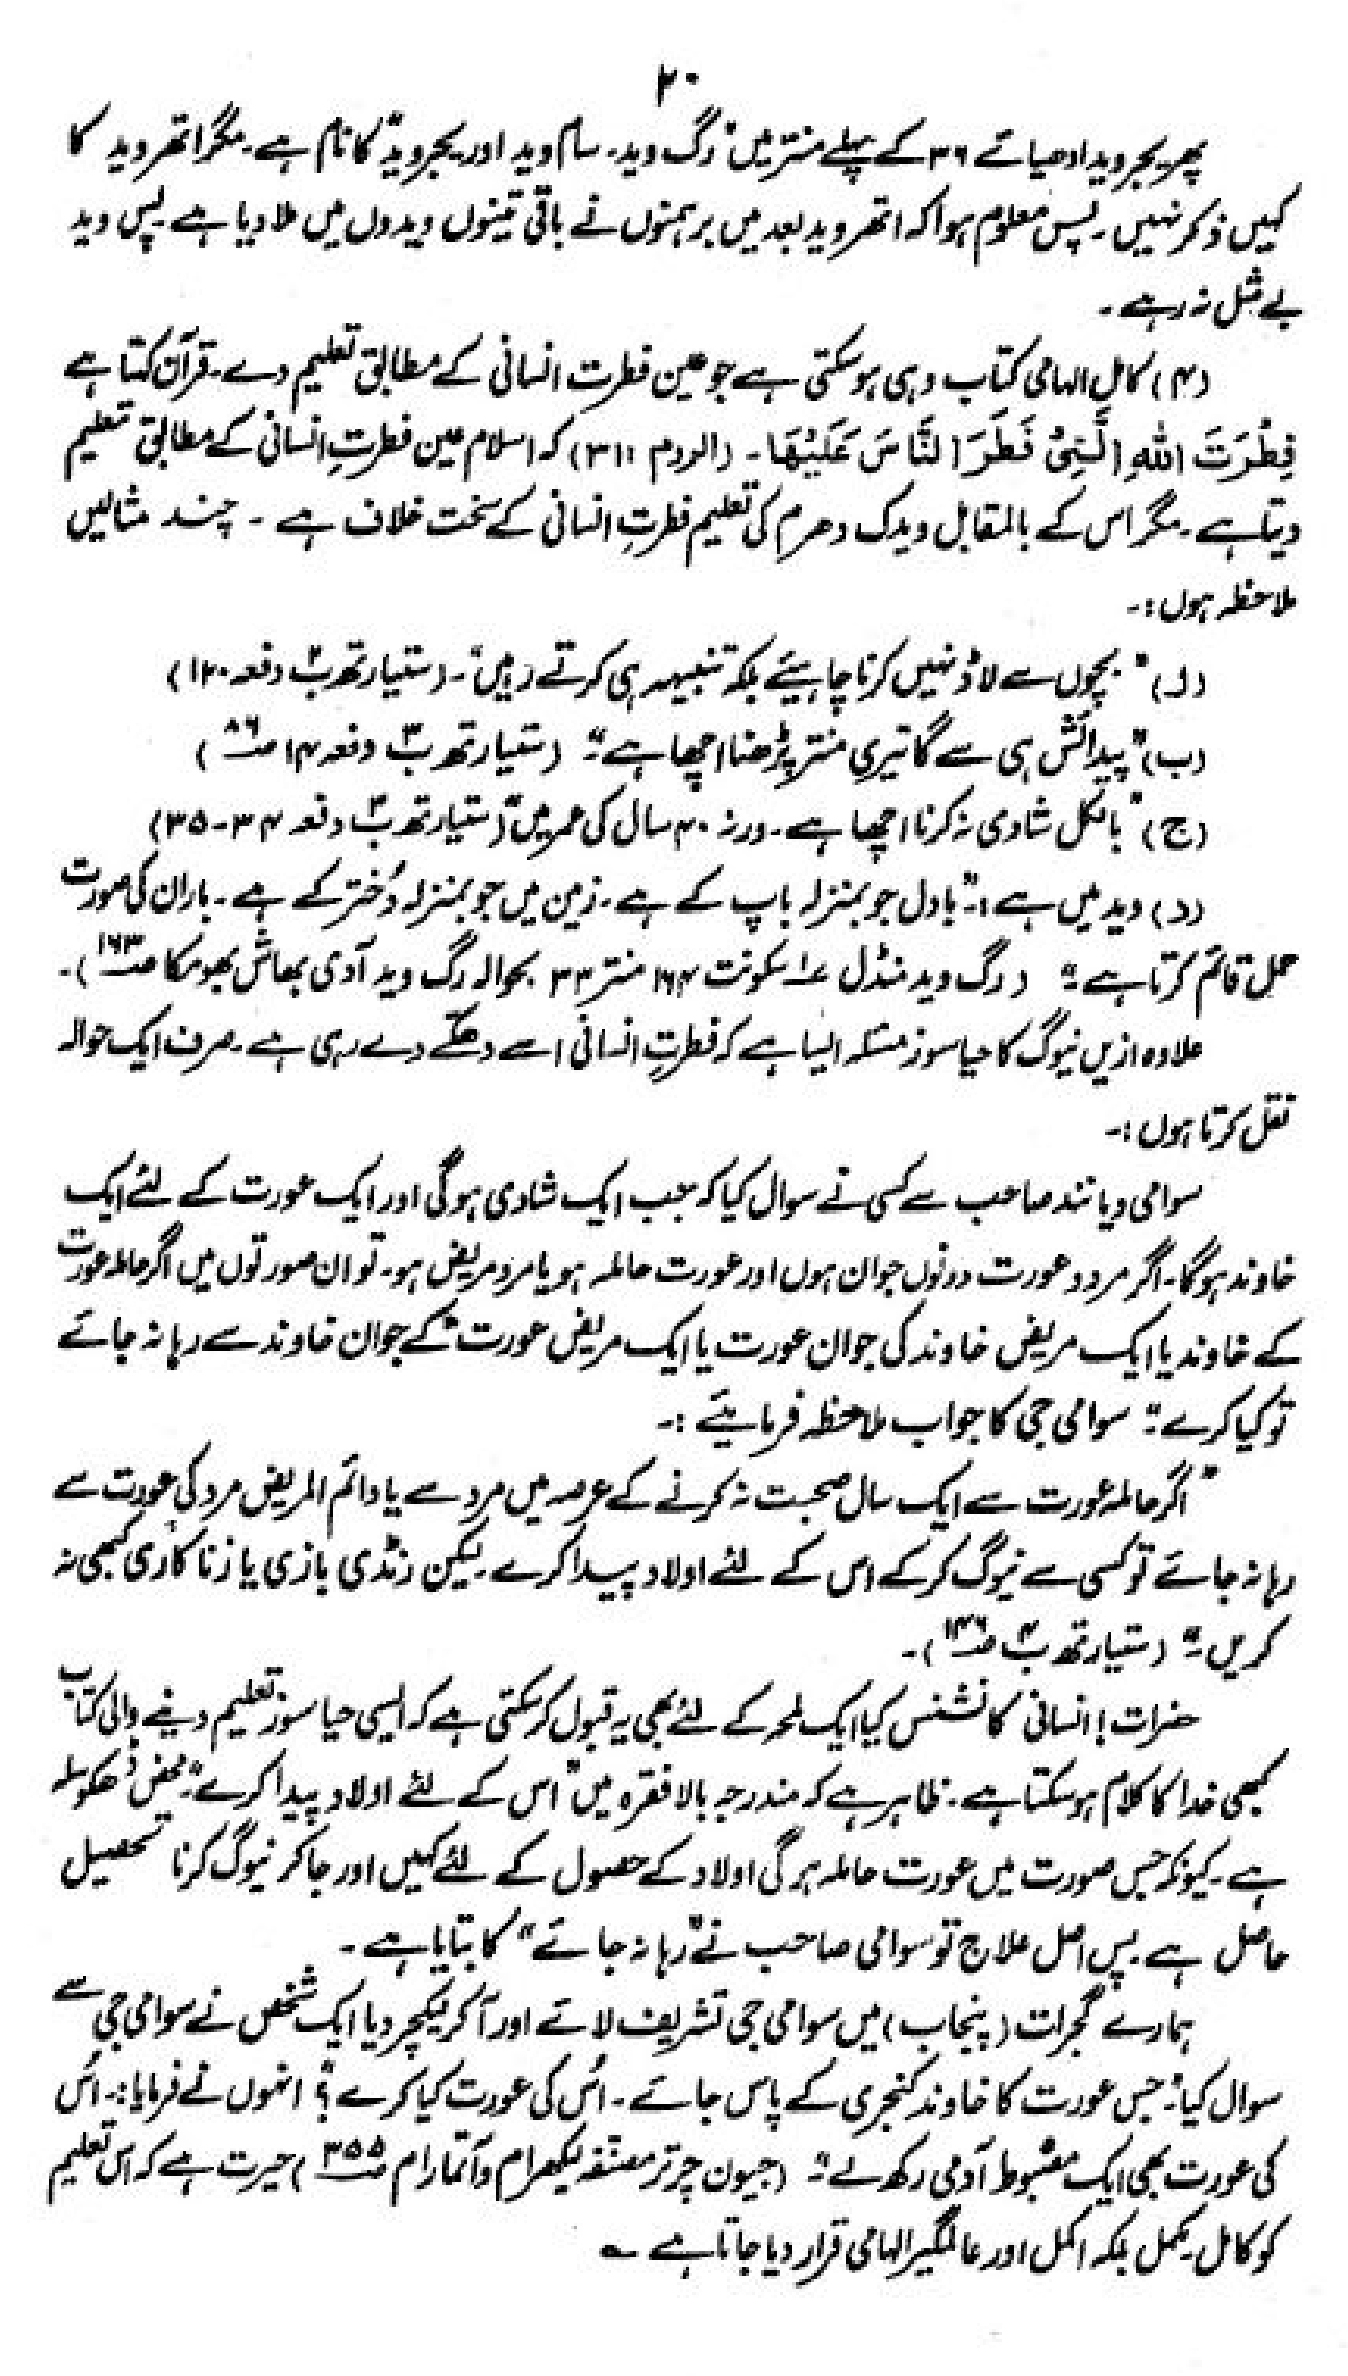 ۲۰
پھر یجروید ادھیائے ۳۶ کے پہلے منتر میں "رگ وید۔ سام وید اور یجروید" کا نام ہے۔ مگر اتھروید کا
کہیں ذکر نہیں۔ پس معلوم ہوا کہ اتھروید بعد میں برہمنوں نے باقی تینوں ویدوں میں ملا دیا ہے۔ پس وید
بے مثل نہ رہے۔
(۴) کامل الہامی کتاب وہی ہو سکتی ہے جو عین فطرت انسانی کے مطابق تعلیم دے۔ قرآن کہتا ہے
فِطْرَتَ اللّٰهِ الَّتِیْ فَطَرَ النَّاسَ عَلَیْهَا۔ (الروم :۳۱) کہ اسلام عین فطرتِ انسانی کے مطابق تعلیم
دیتا ہے۔ مگر اس کے بالمقابل ویدک دھرم کی تعلیم فطرتِ انسانی کے سخت خلاف ہے ۔ چند مثالیں
ملاحظہ ہوں:۔
(ا) "بچوں سے لاڈ نہیں کرنا چاہیئے بلکہ تنبیہہ ہی کرتے رہیں"۔ (ستیارتھ ب۲ دفعہ ۱۲۰)
(ب) "پیدائش ہی سے گائیتری منتر پڑھنا اچھا ہے"۔ (ستیارتھ ب۳ دفعہ ۱۴ ص۸۶)
(ج) "بالکل شادی نہ کرنا اچھا ہے۔ ورنہ ۴۰ سال کی عمر میں" (ستیارتھ ب۳ دفعہ ۳۴-۳۵)
(د) وید میں ہے:۔ "بادل جو بمنزلہ باپ کے ہے۔ زمین میں جو بمنزلہ دُختر کے ہے۔ باران کی صورت
حمل قائم کرتا ہے"۔ (رگ وید منڈل ۱ سکونت ۱۶۴ منتر ۳۳ بحوالہ رگ وید آدی بھاش بھومکا ص۱۶۳)۔
علاوہ ازیں نیوگ کا حیا سوز مسئلہ ایسا ہے کہ فطرتِ انسانی اسے دھکے دے رہی ہے۔ صرف ایک حوالہ
نقل کرتا ہوں:۔
سوامی دیانند صاحب سے کسی نے سوال کیا کہ جب ایک شادی ہوگی اور ایک عورت کے لئے ایک
خاوند ہوگا۔ اگر مرد و عورت دونوں جوان ہوں اور عورت حاملہ ہو یا مرد مریض ہو۔ تو ان صورتوں میں اگر حاملہ عورت
کے خاوند یا ایک مریض خاوند کی جوان عورت یا ایک مریض عورت کے جوان خاوند سے رہا نہ جائے
تو کیا کرے"۔ سوامی جی کا جواب ملاحظہ فرمائیے :۔
"اگر حاملہ عورت سے ایک سال صحبت نہ کرنے کے عرصہ میں مرد سے یا دائم المریض مرد کی عورت سے
رہا نہ جائے تو کسی سے نیوگ کر کے اس کے لئے اولاد پیدا کرے۔ لیکن رنڈی بازی یا زنا کاری کبھی نہ
کریں"۔ (ستیارتھ ب۴ ص۱۴۶)۔
حضرات! انسانی کانشنس کیا ایک لمحہ کے لئے بھی یہ قبول کر سکتی ہے کہ ایسی حیا سوز تعلیم دینے والی کتاب
کبھی خدا کا کلام ہو سکتا ہے۔ ظاہر ہے کہ مندرجہ بالا فقرہ میں "اس کے لئے اولاد پیدا کرے" محض ڈھکوسلہ
ہے۔ کیونکہ جس صورت میں عورت حاملہ ہو گی اولاد کے حصول کے لئے کہیں اور جا کر نیوگ کرنا تحصیل
حاصل ہے۔ پس اصل علاج تو سوامی صاحب نے "رہا نہ جائے" کا بتایا ہے۔
ہمارے گجرات (پنجاب) میں سوامی جی تشریف لائے اور آ کر لیکچر دیا ایک شخص نے سوامی جی سے
سوال کیا:۔ جس عورت کا خاوند کنجری کے پاس جائے۔ اُس کی عورت کیا کرے؟ انہوں نے فرمایا:۔ اُس
کی عورت بھی ایک مضبوط آدمی رکھ لے"۔ (جیون چرتر مصنفہ لیکھرام و آتما رام ص۳۵۵) حیرت ہے کہ اس تعلیم
کو کامل۔ مکمل بلکہ اکمل اور عالمگیر الہامی قرار دیا جاتا ہے ۔